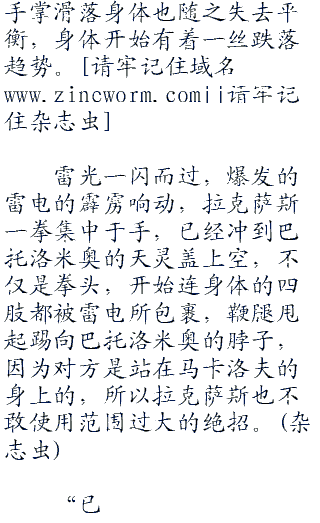 手掌滑落身体也随之失去平
衡，身体开始有着一丝跌落
趋势。[请牢记住域名
www.zincworm.com||请牢记
住杂志虫]
雷光一闪而过，爆发的
雷电的霹雳响动，拉克萨斯
一拳集中于手，已经冲到巴
托洛米奥的天灵盖上空，不
仅是拳头，开始连身体的四
肢都被雷电所包裹，鞭腿甩
起踢向巴托洛米奥的脖子，
因为对方是站在马卡洛夫的
身上的，所以拉克萨斯也不
敢使用范围过大的绝招。(杂
志虫)
“已